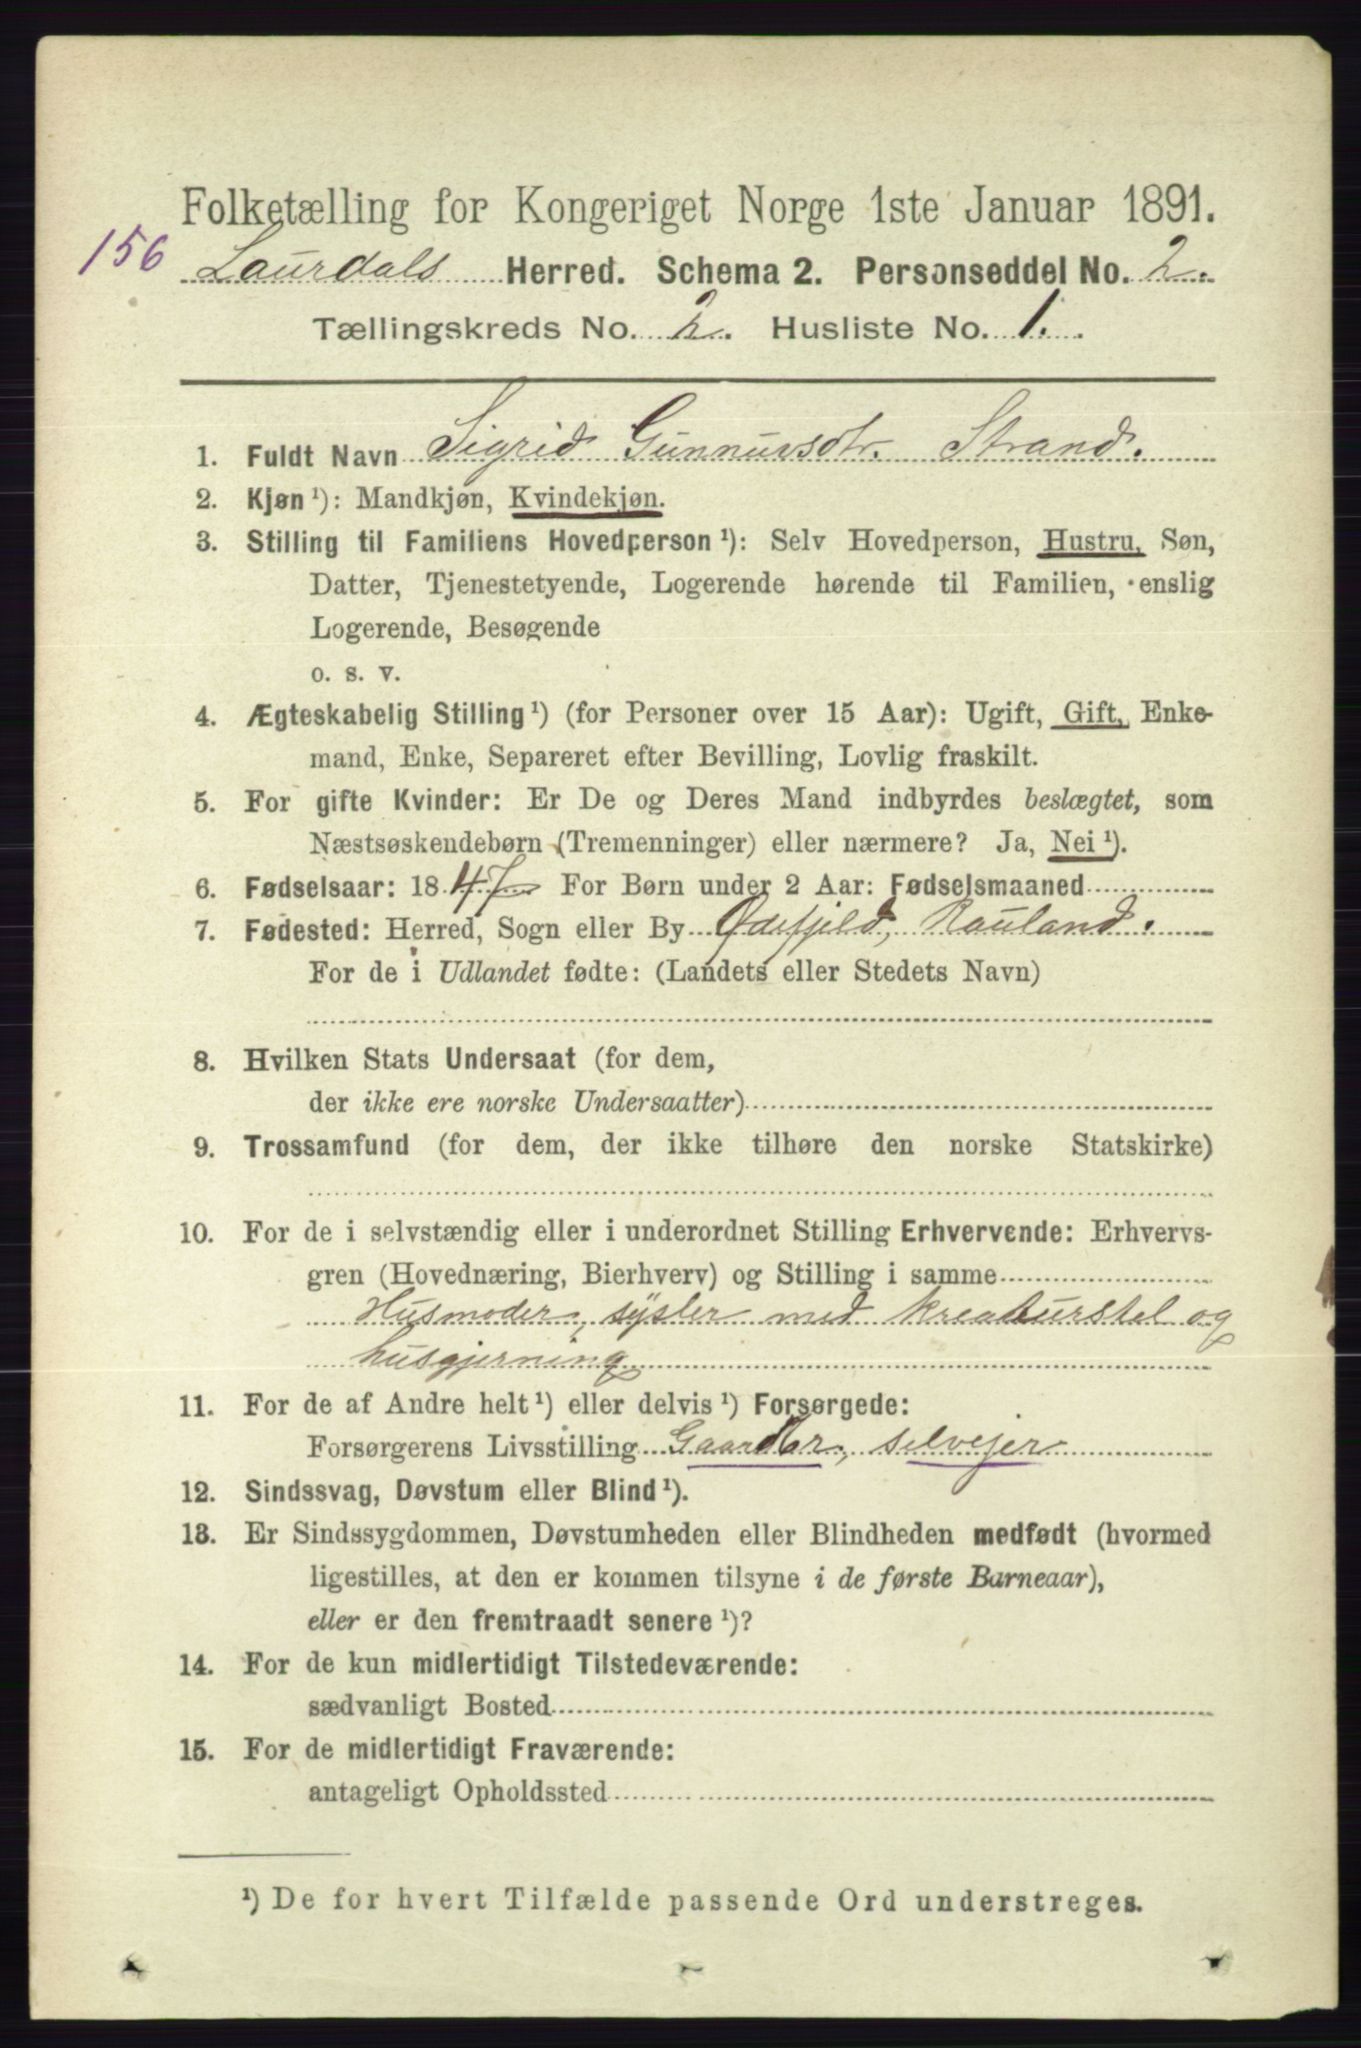 Folketælling for Kongeriget Norge 1ste Januar 1891.
156
Laurdals Herred. Schema 2. Personseddel No. 2.
Tællingskreds No. 2. Husliste No. 1.
1. Fuldt Navn Sigrid Gunnursdtr. Strand.
2. Kjøn ¹): Mandkjøn, Kvindekjøn.
3. Stilling til Familiens Hovedperson ¹): Selv Hovedperson, Hustru, Søn,
Datter, Tjenestetyende, Logerende hørende til Familien, enslig
Logerende, Besøgende
o. s. v.
4. Ægteskabelig Stilling ¹) (for Personer over 15 Aar): Ugift, Gift, Enke-
mand, Enke, Separeret efter Bevilling, Lovlig fraskilt.
5. For gifte Kvinder: Er De og Deres Mand indbyrdes beslægtet, som
Næstsøskendebørn (Tremenninger) eller nærmere? Ja, Nei ¹).
6. Fødselsaar: 1847 For Børn under 2 Aar: Fødselsmaaned
7. Fødested: Herred, Sogn eller By Ødefjeld, Rauland.
For de i Udlandet fødte: (Landets eller Stedets Navn)
8. Hvilken Stats Undersaat (for dem,
der ikke ere norske Undersaatter)
9. Trossamfund (for dem, der ikke tilhøre den norske Statskirke)
10. For de i selvstændig eller i underordnet Stilling Erhvervende: Erhvervs-
gren (Hovednæring, Bierhverv) og Stilling i samme
Husmoder, sysler med kreaturstel og
husgjerning
11. For de af Andre helt ¹) eller delvis ¹) Forsørgede:
Forsørgerens Livsstilling Gaardbr, selvejer
12. Sindssvag, Døvstum eller Blind ¹).
13. Er Sindssygdommen, Døvstumheden eller Blindheden medfødt (hvormed
ligestilles, at den er kommen tilsyne i de første Barneaar),
eller er den fremtraadt senere ¹)?
14. For de kun midlertidigt Tilstedeværende:
sædvanligt Bosted
15. For de midlertidigt Fraværende:
antageligt Opholdssted
¹) De for hvert Tilfælde passende Ord understreges.